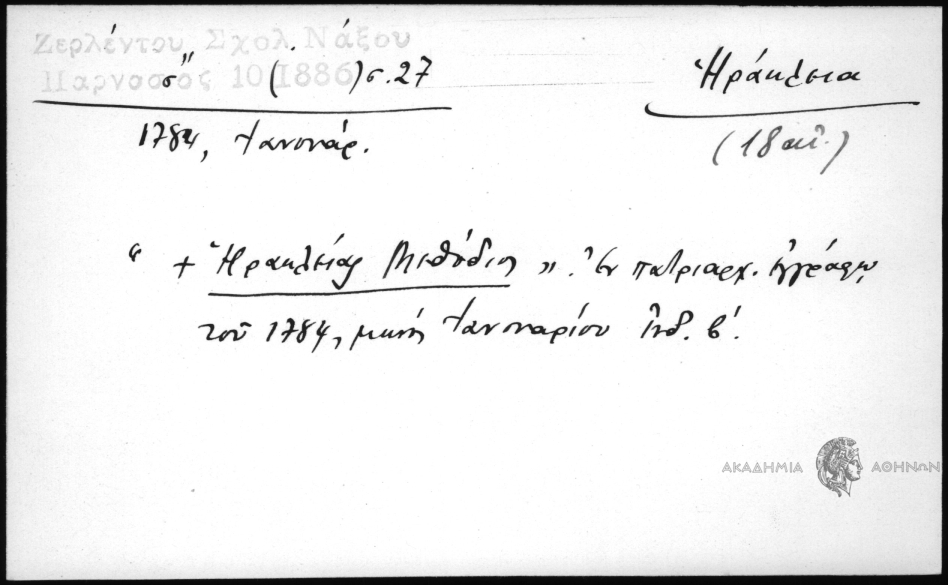 Ζερλέντου, Σχολ. Νάξου
Παρνασσός 10(1886)σ.27
Ἡράκλεια
1784, Ἰανουάρ.
(18 αἰ.)
“ + Ἡρακλείας Μεθόδιος ”. Ἐν πατριαρχ. ἐγγράφῳ
τοῦ 1784, μηνὶ Ἰανουαρίου ἰνδ. β΄.
ΑΚΑΔΗΜΙΑ ΑΘΗΝΩΝ